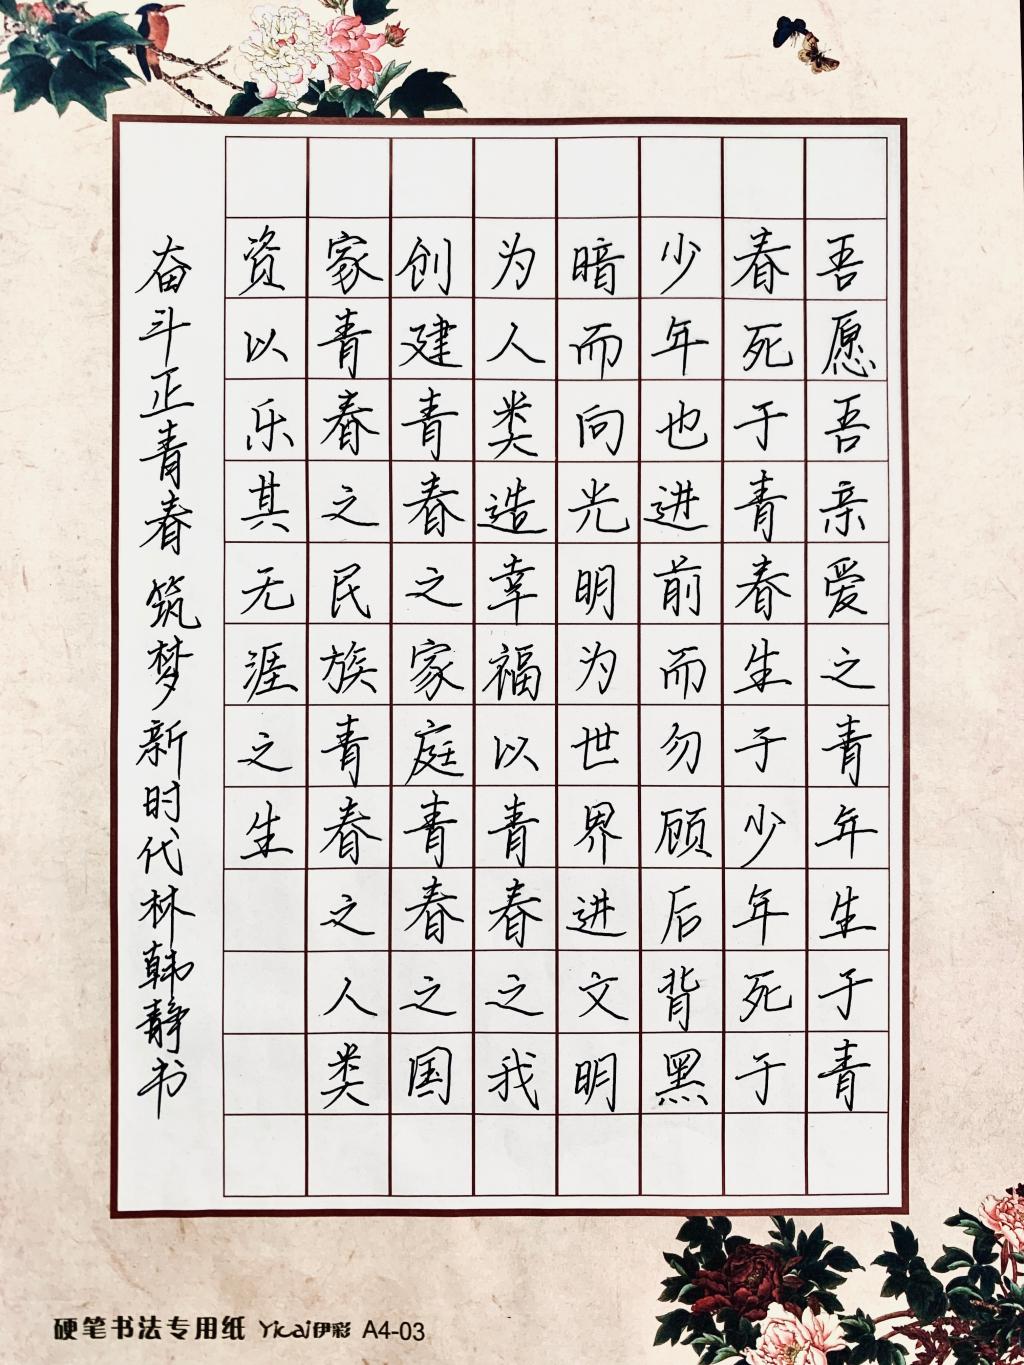 吾愿吾亲爱之青年生于青
春死于青春生于少年死于
少年也进前而勿顾后背黑
暗而向光明为世界进文明
为人类造幸福以青春之我
创建青春之家庭青春之国
家青春之民族青春之人类
资以乐其无涯之生
奋斗正青春 筑梦新时代 林韩静书
硬笔书法专用纸 Yicai伊彩 A4-03